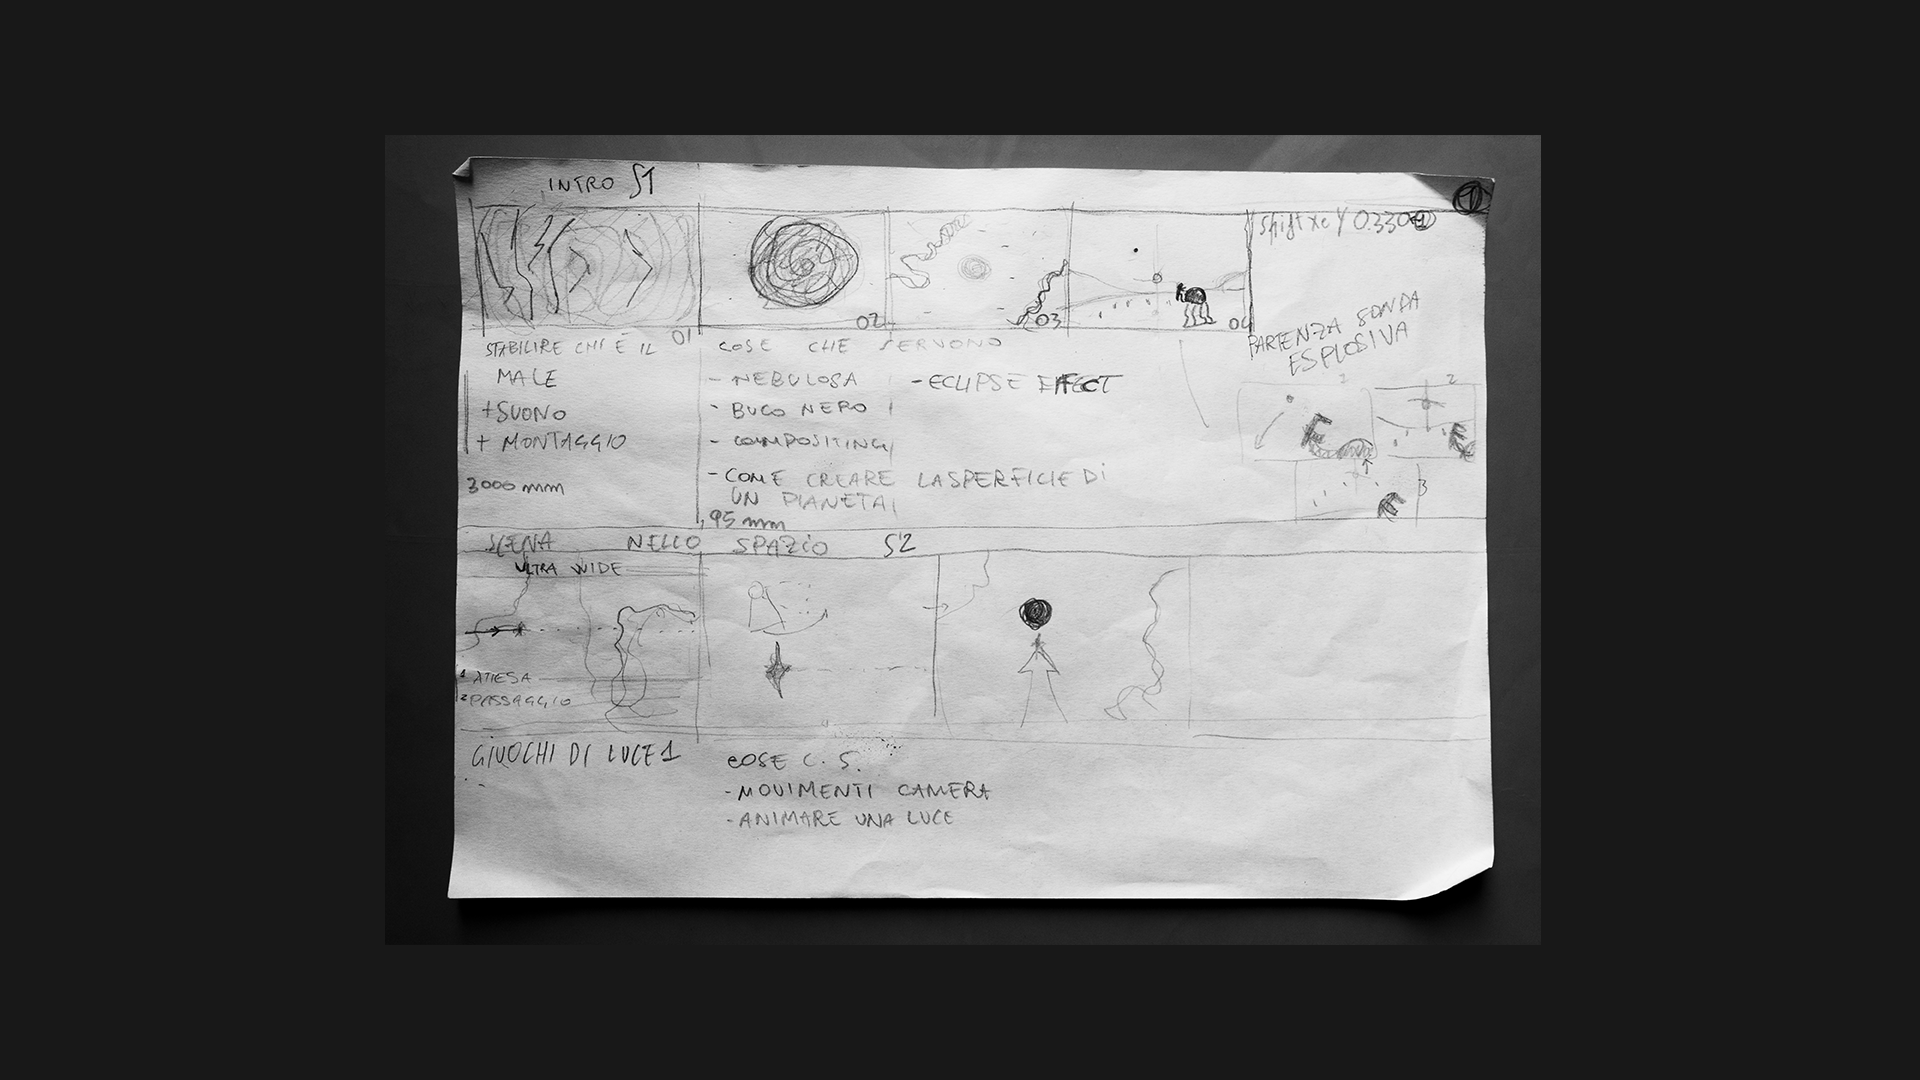 INTRO S1
1
Shift x e Y 0.330
01
02
03
04
STABILIRE CHI È IL
MALE
+SUONO
+ MONTAGGIO
3000 mm
COSE CHE SERVONO
- NEBULOSA
- BUCO NERO
- COMPOSITING
- COME CREARE LA SPERFICIE DI
UN PIANETA
95 mm
- ECLIPSE EFFECT
PARTENZA SONDA
ESPLOSIVA
2
E
E
3
E
SCENA NELLO SPAZIO S2
ULTRA WIDE
1 ATTESA
2 PASSAGGIO
GIUOCHI DI LUCE 1
COSE C. S.
- MOVIMENTI CAMERA
- ANIMARE UNA LUCE